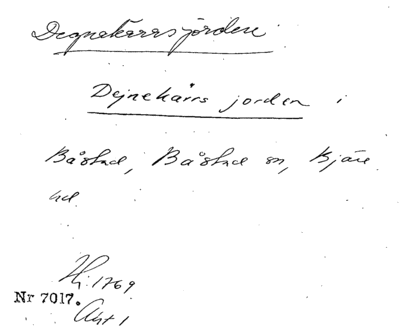 Degnekärrsjorden
Dejnekärrs jorden i
Båstad, Båstad sn, Bjäre
hd
Hj. 1769
Nr 7017.
Akt 1